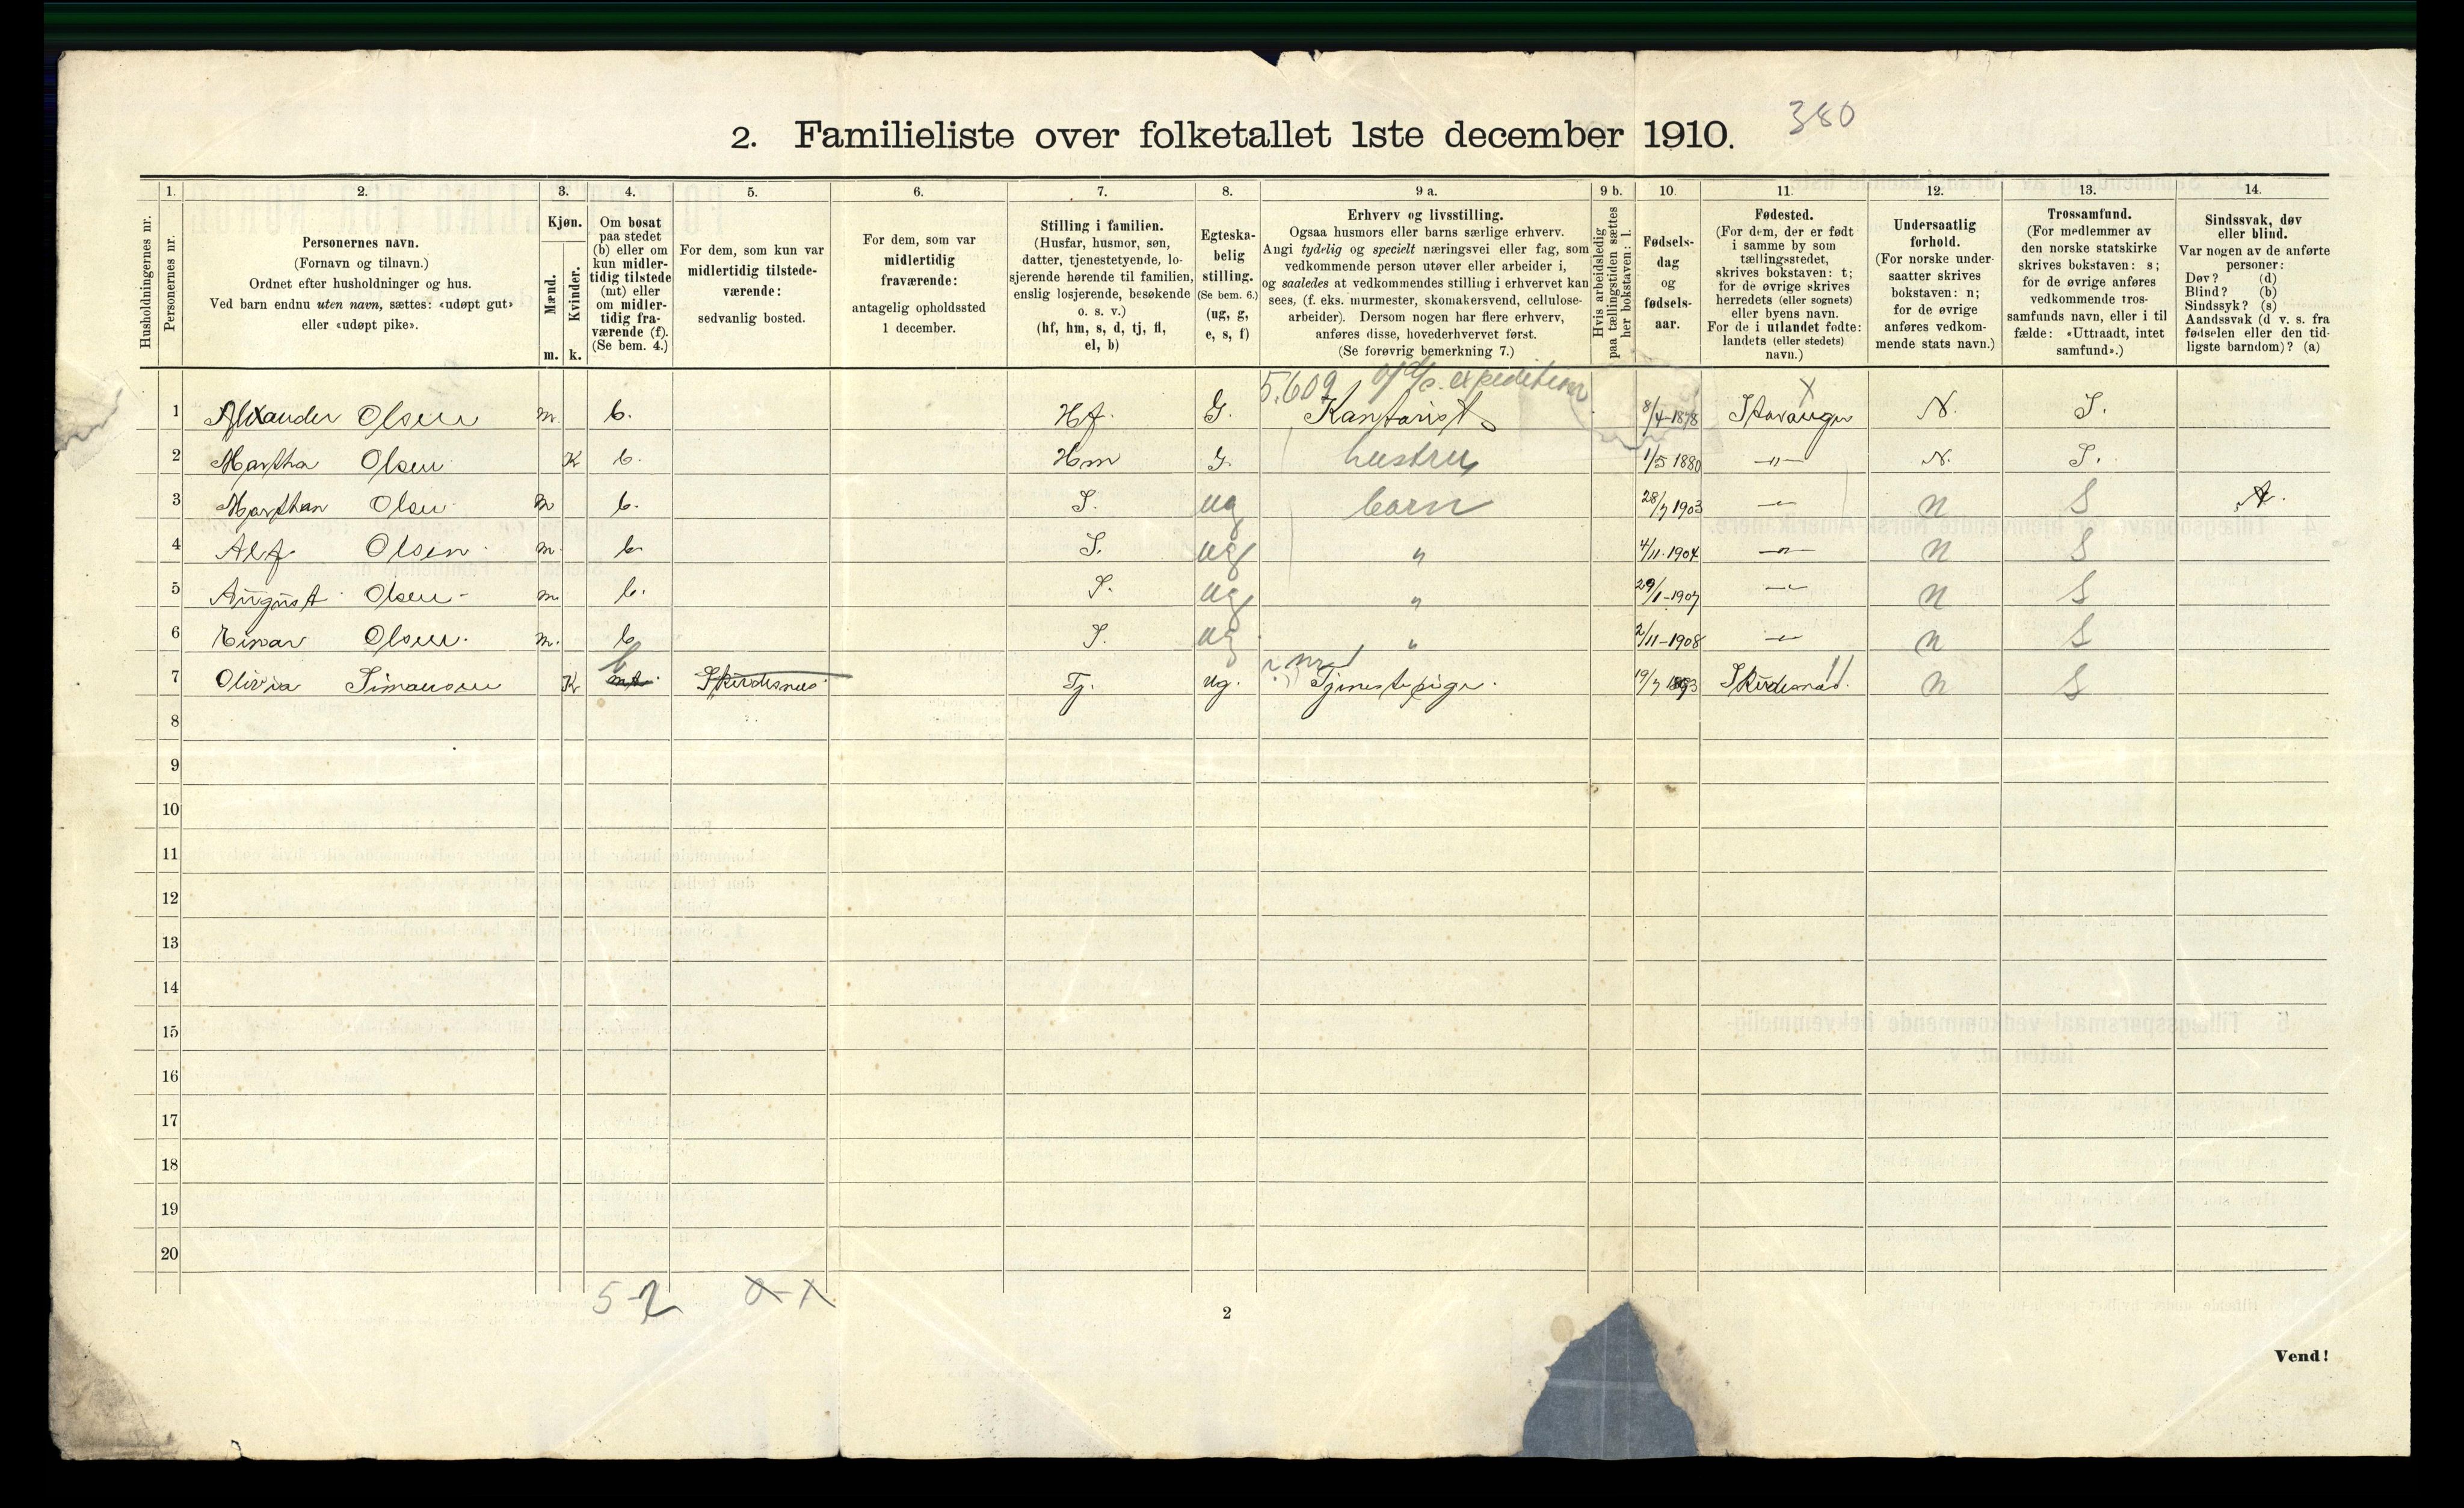 380
2. Familieliste over folketallet 1ste december 1910.
Husholdningernes nr.
1.
Personernes nr.
2.
Personernes navn.
(Fornavn og tilnavn.)
Ordnet efter husholdninger og hus.
Ved barn endnu uten navn, sættes: «udøpt gut»
eller «udøpt pike».
3.
Kjøn.
Mænd.
m.
Kvinder.
k.
4.
Om bosat
paa stedet
(b) eller om
kun midler-
tidig tilstede
(mt) eller
om midler-
tidig fra-
værende (f).
(Se bem. 4.)
5.
For dem, som kun var
midlertidig tilstede-
værende:
sedvanlig bosted.
6.
For dem, som var
midlertidig
fraværende:
antagelig opholdssted
1 december.
7.
Stilling i familien.
(Husfar, husmor, søn,
datter, tjenestetyende, lo-
sjerende hørende til familien,
enslig losjerende, besøkende
o. s. v.)
(hf, hm, s, d, tj, fl,
el, b)
8.
Egteska-
belig
stilling.
(Se bem. 6.)
(ug, g,
e, s, f)
9 a.
Erhverv og livsstilling.
Ogsaa husmors eller barns særlige erhverv.
Angi tydelig og specielt næringsvei eller fag, som
vedkommende person utøver eller arbeider i,
og saaledes at vedkommendes stilling i erhvervet kan
sees, (f. eks. murmester, skomakersvend, cellulose-
arbeider). Dersom nogen har flere erhverv,
anføres disse, hovederhvervet først.
(Se forøvrig bemerkning 7.)
9 b.
Hvis arbeidsledig
paa tællingstiden sættes
her bokstaven: l.
10.
Fødsels-
dag
og
fødsels-
aar.
11.
Fødested.
(For dem, der er født
i samme by som
tællingsstedet,
skrives bokstaven: t;
for de øvrige skrives
herredets (eller sognets)
eller byens navn.
For de i utlandet fødte:
landets (eller stedets)
navn.)
12.
Undersaatlig
forhold.
(For norske under-
saatter skrives
bokstaven: n;
for de øvrige
anføres vedkom-
mende stats navn.)
13.
Trossamfund.
(For medlemmer av
den norske statskirke
skrives bokstaven: s;
for de øvrige anføres
vedkommende tros-
samfunds navn, eller i til
fælde: «Uttraadt, intet
samfund».)
14.
Sindssvak, døv
eller blind.
Var nogen av de anførte
personer:
Døv? (d)
Blind? (b)
Sindssyk? (s)
Aandssvak (d v. s. fra
fødselen eller den tid-
ligste barndom)? (a)
5.609 expedition X
1 Alexander Olsen m. b. Hf. G. Kontorist 8/4-1878 Stavanger N. S.
2 Martha Olsen K b. Hm G. hustru 1/5 1880 -"- N. S.
3 Marthan Olsen m b. S. ug barn 28/7 1903 -"- n S A.
4 Alf Olsen m. b. S. ug " 4/11-1904 -"- n S
5 August Olsen m. b. S. ug " 29/1-1907 -"- n S
6 Einar Olsen m. b S. ug " 2/11-1908 -"- n S
b
7 Olivia Simonsen K mt. Skudesnes Tj. ug. Tjenestepige. 19/7 1893 Skudesnes. n S
8
9
10
11
12
13
14
15
16
17
18
19
20
5-2
2
Vend!